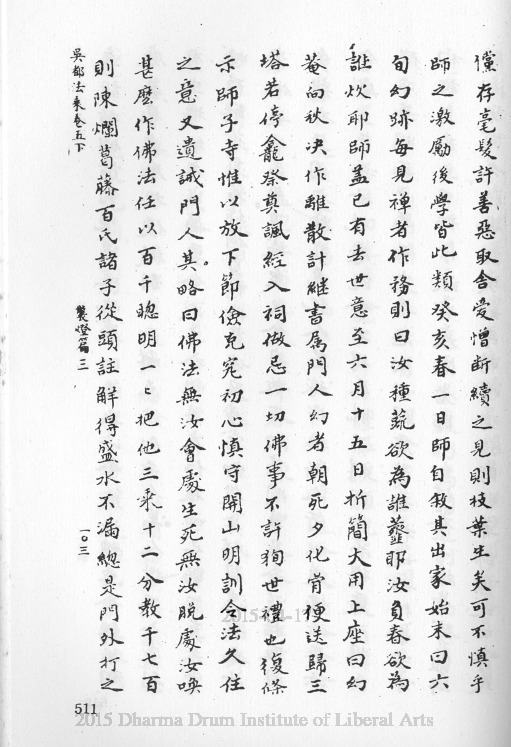 儻存毫髮許善惡取舍愛憎斷續之見則枝葉生矣可不慎乎
師之激勵後學皆此類癸亥春一日師自敘其出家始末曰六
旬幻跡每見禪者作務則曰汝種蔬欲為誰虀耶汝負舂欲為
誰炊耶師蓋已有去世意至六月十五日折簡大用上座曰幻
菴向秋决作離散計継書属門人幻者朝死夕化骨便送歸三
塔若停龕祭奠諷經入祠做忌一切佛事不許狥世禮也復條
示師子寺惟以放下節儉克究初心慎守開山明訓令法久住
之意又遺誡門人其略曰佛法無汝會處生死無汝脫處汝喚
甚麽作佛法任以百千聰明一一把他三乘十二分教千七百
則陳爛葛藤百氏諸子從頭註解得盛水不漏總是門外打之
吳都法乘卷五下
襲燈篇 三
一〇三
511
2015-04-1
2015 Dharma Drum Institute of Liberal Arts